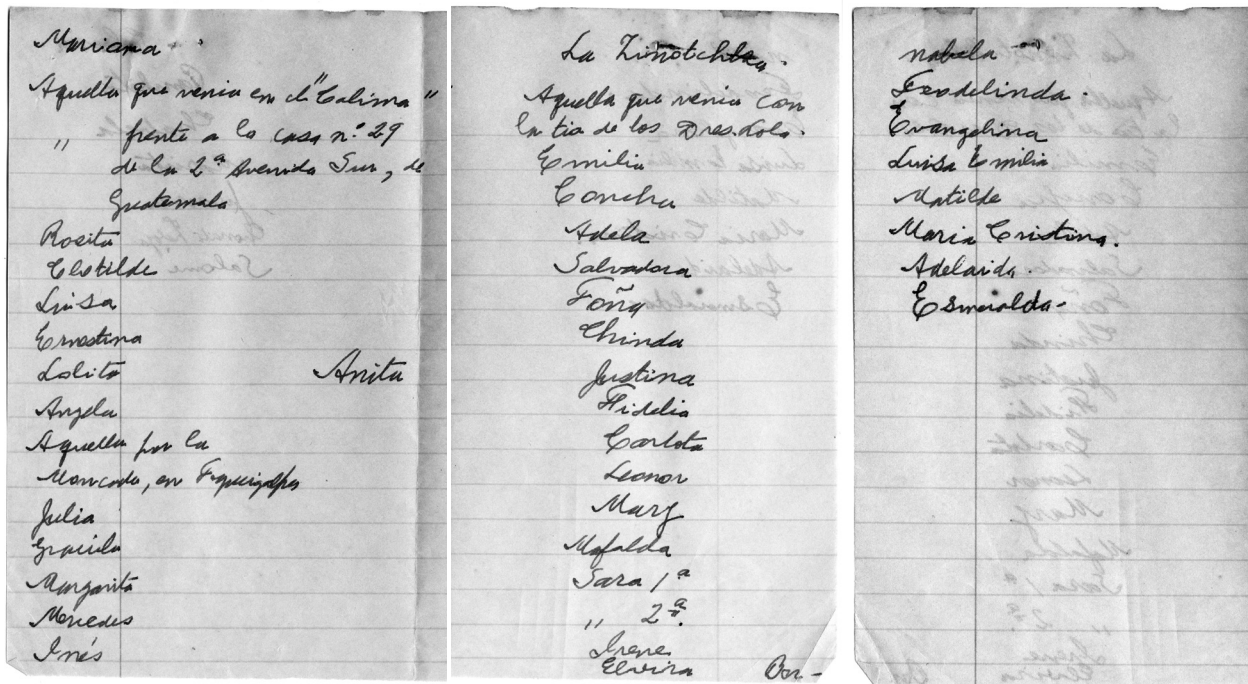 Mariana
Aquella que venia en el "Colima"
" frente a la casa n.º 29
de la 2ª Avenida Sur, de
Guatemala
Rosita
Clotilde
Luisa
Ernestina
Lolita Anita
Angela
Aquella por la
Moncada, en Tegucigalpa
Julia
Graciela
Margarita
Mercedes
Inés
La
Aquella que venia con
la tia de los Dres. Lola.
Emilia
Concha
Adela
Salvadora
Toña
Chinda
Justina
Fidelia
Carlota
Leonor
Mary
Mafalda
Sara 1ª
" 2ª.
Irene
Elvira
nabela
Teodelinda.
Evangelina
Luisa Emilia
Matilde
Maria Cristina.
Adelaida.
Esmeralda-